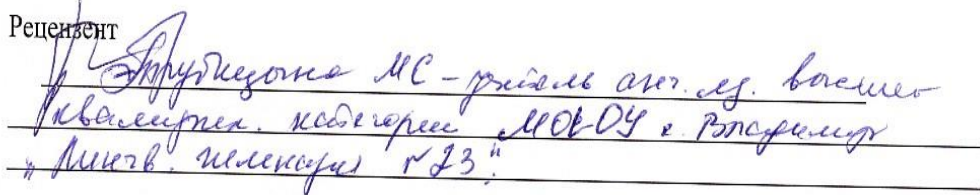 Рецензент
Трубицына МС - учитель анг. яз. высшей
квалифик. категории г. Владимир
"Лингв. гимназия №23".